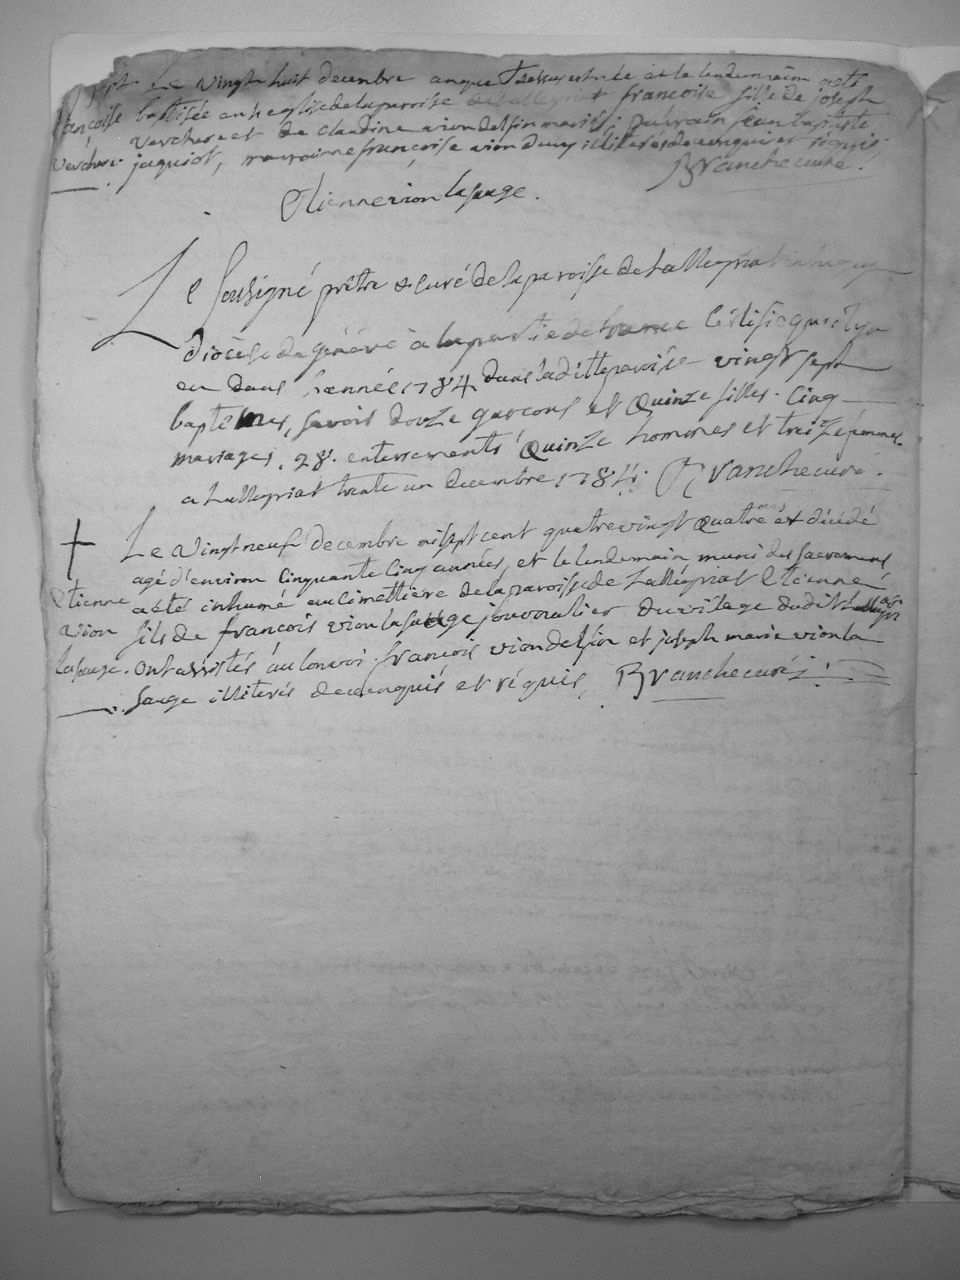 bapt. Le vingt huit decembre an que dessus est née et le lendemain a été
françoise baptisée en l'eglise de la paroise de Lalleyriat françoise fille de joseph
verchere et de claudine vion delfin mariés; parrain jean baptiste
verchere jaquiot, marrainne françoise vion illiterés de cenquis et requis
Branche curé.
Etienne vion lasauge.
Le Sousigné prêtre & curé de la paroisse de Lalleyriat
diocèse de génève à la partie de france Certifie qu'il y a
eu dans l'année 1784 dans laditte paroise vingt sept
baptemes, savoir douze garçons et Quinze filles. Cinq
mariages, 28. enterrements Quinze hommes et treize femmes.
a Lalleyriat trente un decembre 1784. Branche curé.
Le vingt neuf decembre mil sept cent quatre vingt Quatre est décédé
agé d'environ Cinquante Cinq années, et le lendemain muni des sacremens
Etienne a été inhumé au Cimettiere de la paroisse de Lalleyriat Etienne
vion fils de françois vion lasauge jouvournlier du vilage dudit
lasauge. ont assistés au convoi françois vion delfin et joseph marie vion la
sauge illiterés de cenquis et réquis, Branche curé.